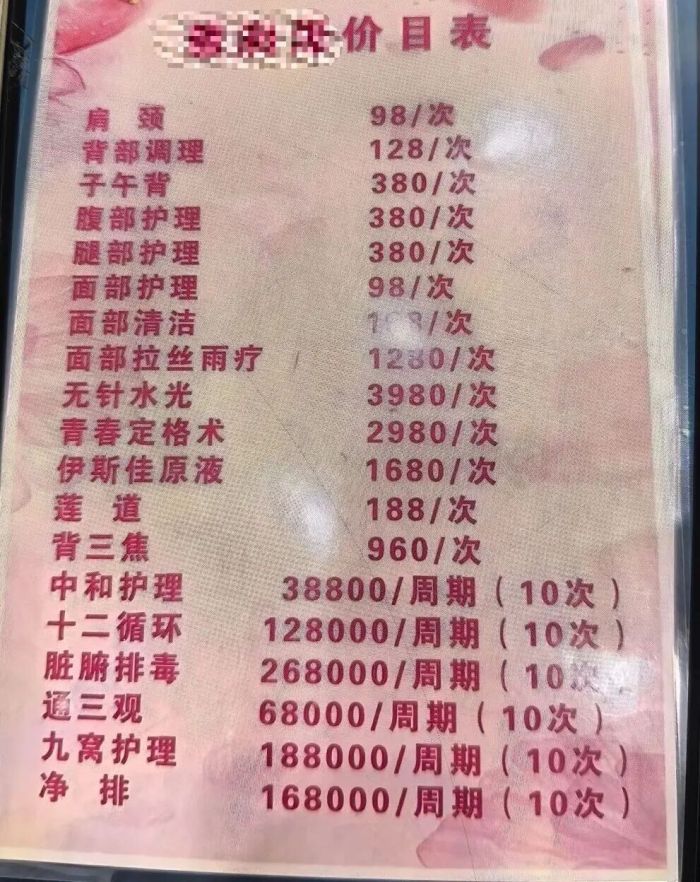 价目表
肩 颈 98/次
背部调理 128/次
子午背 380/次
腹部护理 380/次
腿部护理 380/次
面部护理 98/次
面部清洁 /次
面部拉丝雨疗 1280/次
无针水光 3980/次
青春定格术 2980/次
伊斯佳原液 1680/次
莲 道 188/次
背三焦 960/次
中和护理 38800/周期（10次）
十二循环 128000/周期（10次）
脏腑排毒 268000/周期（10次）
通三观 68000/周期（10次）
九窝护理 188000/周期（10次）
净 排 168000/周期（10次）